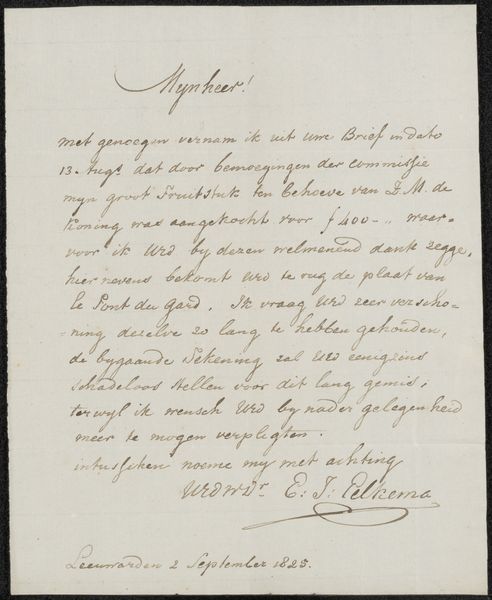 Mynheer!
met genoegen vernam ik uit uwe Brief in dato
13 Augs. dat door bemoegingen der Commissie
myn groot Fruitstuk ten behoeve van Z. M. de
Koning was aangekocht voor f 400 -,, waar-
voor ik UEd by dezen welmenend dank zegge,
hier nevens bekomt UEd te rug de plaat van
Le Pont du Gard. Ik vraag UEd zeer verscho-
-ning dezelve zo lang te hebben gehouden,
de bygaande Tekening zal UEd eenigzins
schadeloos stellen voor dit lang gemis,
terwyl ik wensch UEd by nader gelegenheid
meer te mogen verpligten.
intusschen noeme my met achting
UEdwDr E: J: Eelkema
Leeuwarden 2 September 1825.